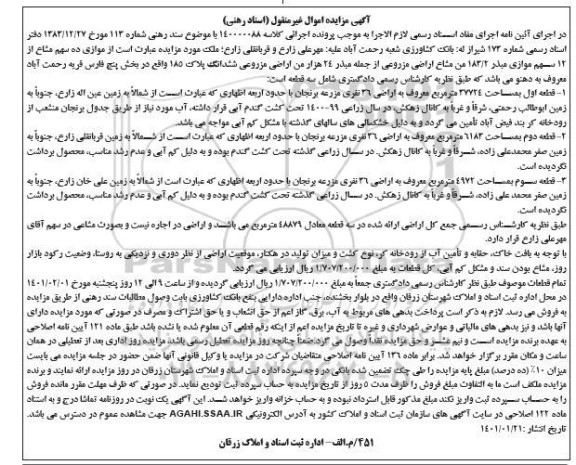 آگهی مزایده اموال غیرمنقول (اسناد رهنی)
در اجرای آئین نامه اجرای مفاد اسناد رسمی لازم الاجرا به موجب پرونده اجرائی کلاسه ۱۴۰۰۰۰۰۸۸ با موضوع سند رهنی شماره ۱۱۳ مورخ ۱۳۸۳/۱۲/۲۷ دفتر
اسناد رسمی شماره ۱۷۳ شیراز له: بانک کشاورزی شعبه رحمت آباد علیه: مهرعلی زارع و قربانقلی زارع؛ ملک مورد مزایده عبارت است از موازی ده سهم مشاع از
۱۲ سهم موازی میدر ۱۸۳/۲ من مشاع اراضی مزروعی از جمله میدر ۲۴ هزار من اراضی مزروعی ششدانگ پلاک ۱۸۵ واقع در بخش پنج فارس قریه رحمت آباد
معروف به دهنو می باشد که طبق نظریه کارشناس رسمی دادگستری شامل سه قطعه است:
۱- قطعه اول بمساحت ۳۷۷۲۴ مترمربع معروف به اراضی ۳۶ نفری مزرعه برنجان با حدود اربعه اظهاری که عبارت است از شمالاً به زمین عین اله زارع، جنوباً به
زمین ابوطالب رحمتی، شرقاً و غرباً به کانال زهکش. در سال زراعی ۹۹-۱۴۰۰ تحت کشت گندم آبی قرار داشته، آب مورد نیاز از طریق جدول برنجان منشعب از
رودخانه کر بند فیض آباد تأمین می گردد و به دلیل خشکسالی های سالهای گذشته با مشکل کم آبی مواجه می باشد.
۲- قطعه دوم بمساحت ۶۱۸۳ مترمربع معروف به اراضی ۳۶ نفری مزرعه برنجان با حدود اربعه اظهاری که عبارت است از شمالاً به زمین قربانقلی زارع، جنوباً به
زمین صفر محمدعلی زاده، شرقاً و غرباً به کانال زهکش. در سال زراعی گذشته تحت کشت گندم بوده و به دلیل کم آبی و عدم رشد مناسب، محصول برداشت
نگردیده است.
۳- قطعه سوم بمساحت ۴۹۷۲ مترمربع معروف به اراضی ۳۶ نفری مزرعه برنجان با حدود اربعه اظهاری که عبارت است از شمالاً به زمین علی خان زارع، جنوباً به
زمین صفر محمد علی زاده، شرقاً و غرباً به کانال زهکش. در سال زراعی گذشته تحت کشت گندم بوده و به دلیل کم آبی و عدم رشد مناسب، محصول برداشت
نگردیده است.
طبق نظریه کارشناس رسمی جمع کل اراضی ارائه شده در سه قطعه معادل ۴۸۸۷۹ مترمربع می باشند و اراضی در اجاره نیست و بصورت مشاعی در سهم آقای
مهرعلی زارع قرار دارد.
با توجه به بافت خاک، حقابه و تأمین آب از رودخانه کر، نوع کشت و میزان تولید در هکتار، موقعیت اراضی از نظر دوری و نزدیکی به روستا، وضعیت رکود بازار
روز، مشاع بودن سند و مشکل کم آبی، کل قطعات به مبلغ ۱/۷۰۷/۲۰۰/۰۰۰ ریال ارزیابی می گردد.
تمام قطعات موصوف طبق نظر کارشناس رسمی دادگستری جمعاً به مبلغ ۱/۷۰۷/۲۰۰/۰۰۰ ریال ارزیابی گردیده و از ساعت ۹ الی ۱۲ روز پنجشنبه مورخ ۱۴۰۱/۰۲/۰۱
در محل اداره ثبت اسناد و املاک شهرستان زرقان واقع در بلوار بخشنده، جنب اداره دارایی بنفع بانک کشاورزی بابت وصول مطالبات سند رهنی از طریق مزایده
به فروش می رسد. لازم به ذکر است پرداخت بدهی های مربوط به آب، برق، گاز اعم از حق انشعاب و یا حق اشتراک و مصرف در صورتی که مورد مزایده دارای
آنها باشد و نیز بدهی های مالیاتی و عوارض شهرداری و غیره تا تاریخ مزایده اعم از اینکه رقم قطعی آن معلوم شده یا نشده باشد طبق ماده ۱۲۱ آیین نامه اصلاحی
به عهده برنده مزایده است و نیم عشر و حق مزایده نقداً وصول می گردد. ضمناً چنانچه روز مزایده تعطیل رسمی باشد، مزایده روز اداری بعد از تعطیلی در همان
ساعت و مکان مقرر برگزار خواهد شد. برابر ماده ۱۳۶ آیین نامه اصلاحی متقاضیان شرکت در مزایده یا وکیل قانونی آنها ضمن حضور در جلسه مزایده می بایست
میزان ۱۰٪ (ده درصد) مبلغ پایه مزایده را طی چک تضمین شده بانکی در وجه سپرده اداره ثبت اسناد و املاک شهرستان زرقان در روز مزایده ارائه نمایند و برنده
مزایده مکلف است ما به التفاوت مبلغ فروش را ظرف مدت ۵ روز از تاریخ مزایده به حساب سپرده ثبت تودیع نماید، در صورتی که ظرف مهلت مقرر مانده فروش
را به حساب سپرده ثبت واریز نکند مبلغ مذکور قابل استرداد نبوده و به حساب خزانه واریز خواهد شد. این آگهی یک نوبت در روزنامه تماشا درج و به استناد
ماده ۱۲۲ اصلاحی در سایت آگهی های سازمان ثبت اسناد و املاک کشور به آدرس الکترونیکی AGAHI.SSAA.IR جهت مشاهده عموم در دسترس می باشد.
تاریخ انتشار: ۱۴۰۱/۰۱/۲۱
۴۵۱/م.الف- اداره ثبت اسناد و املاک زرقان